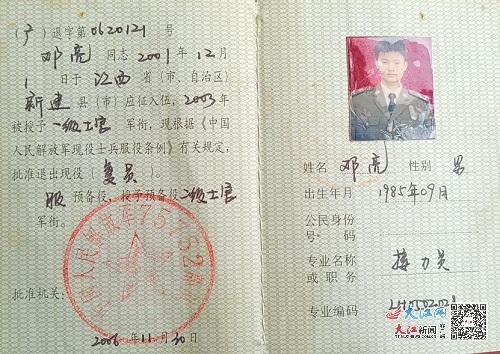 (广)退字第0620121号
邓亮同志2001年12月
1日于江西省(市、自治区)
新建县(市)应征入伍,2003年
被授予一级士官军衔,现根据《中国
人民解放军现役士兵服役条例》有关规定,
批准退出现役(复员)
服预备役,授予预备役二级士官
军衔。
批准机关:
中国人民解放军75752部队
2006年11月30日
姓名 邓亮 性别 男
出生年月 1985年09月
公民身份
号码
专业名称
或职务 接力员
专业编码
大江网
大江新闻